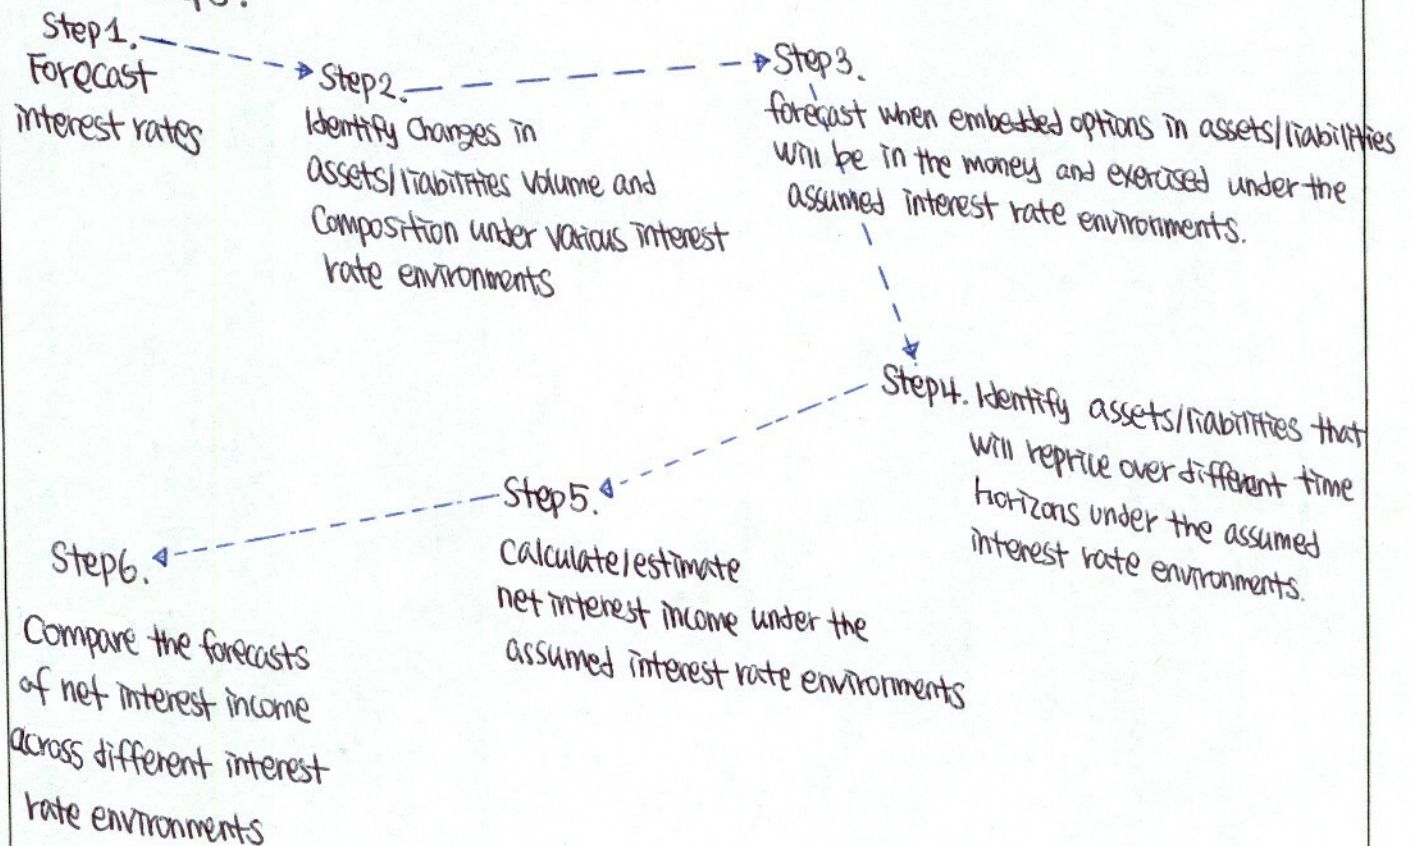 Step1.
Forecast
interest rates
Step2.
Identify Changes in
assets/liabilities volume and
Composition under various interest
rate environments
Step3.
forecast when embedded options in assets/liabilities
will be in the money and exercised under the
assumed interest rate environments.
Step4. Identify assets/liabilities that
will reprice over different time
horizons under the assumed
interest rate environments.
Step5.
Calculate/estimate
net interest income under the
assumed interest rate environments
Step6.
Compare the forecasts
of net interest income
across different interest
rate environments